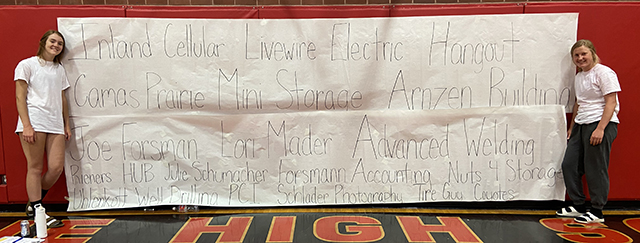 Inland Cellular Livewire Electric Hangout
Camas Prairie Mini Storage Arnzen Building
Joe Forsman Lori Mader Advanced Welding
Rieners HUB Julie Schumacher Forsmann Accounting Nuts 4 Storage
Uhlenkott Well Drilling PCT Schlader Photography Tire Guy Coyotes
HIGH